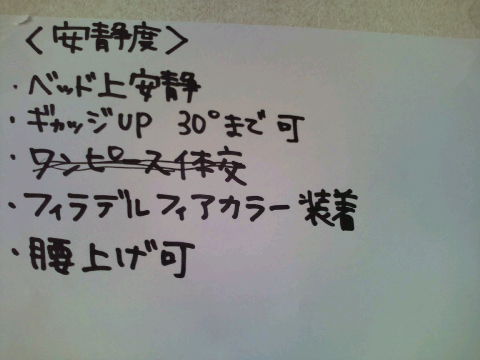 <安静度>
・ベッド上安静
・ギャッジUP 30°まで可
・ワンピース体交
・フィラデルフィアカラー装着
・腰上げ可